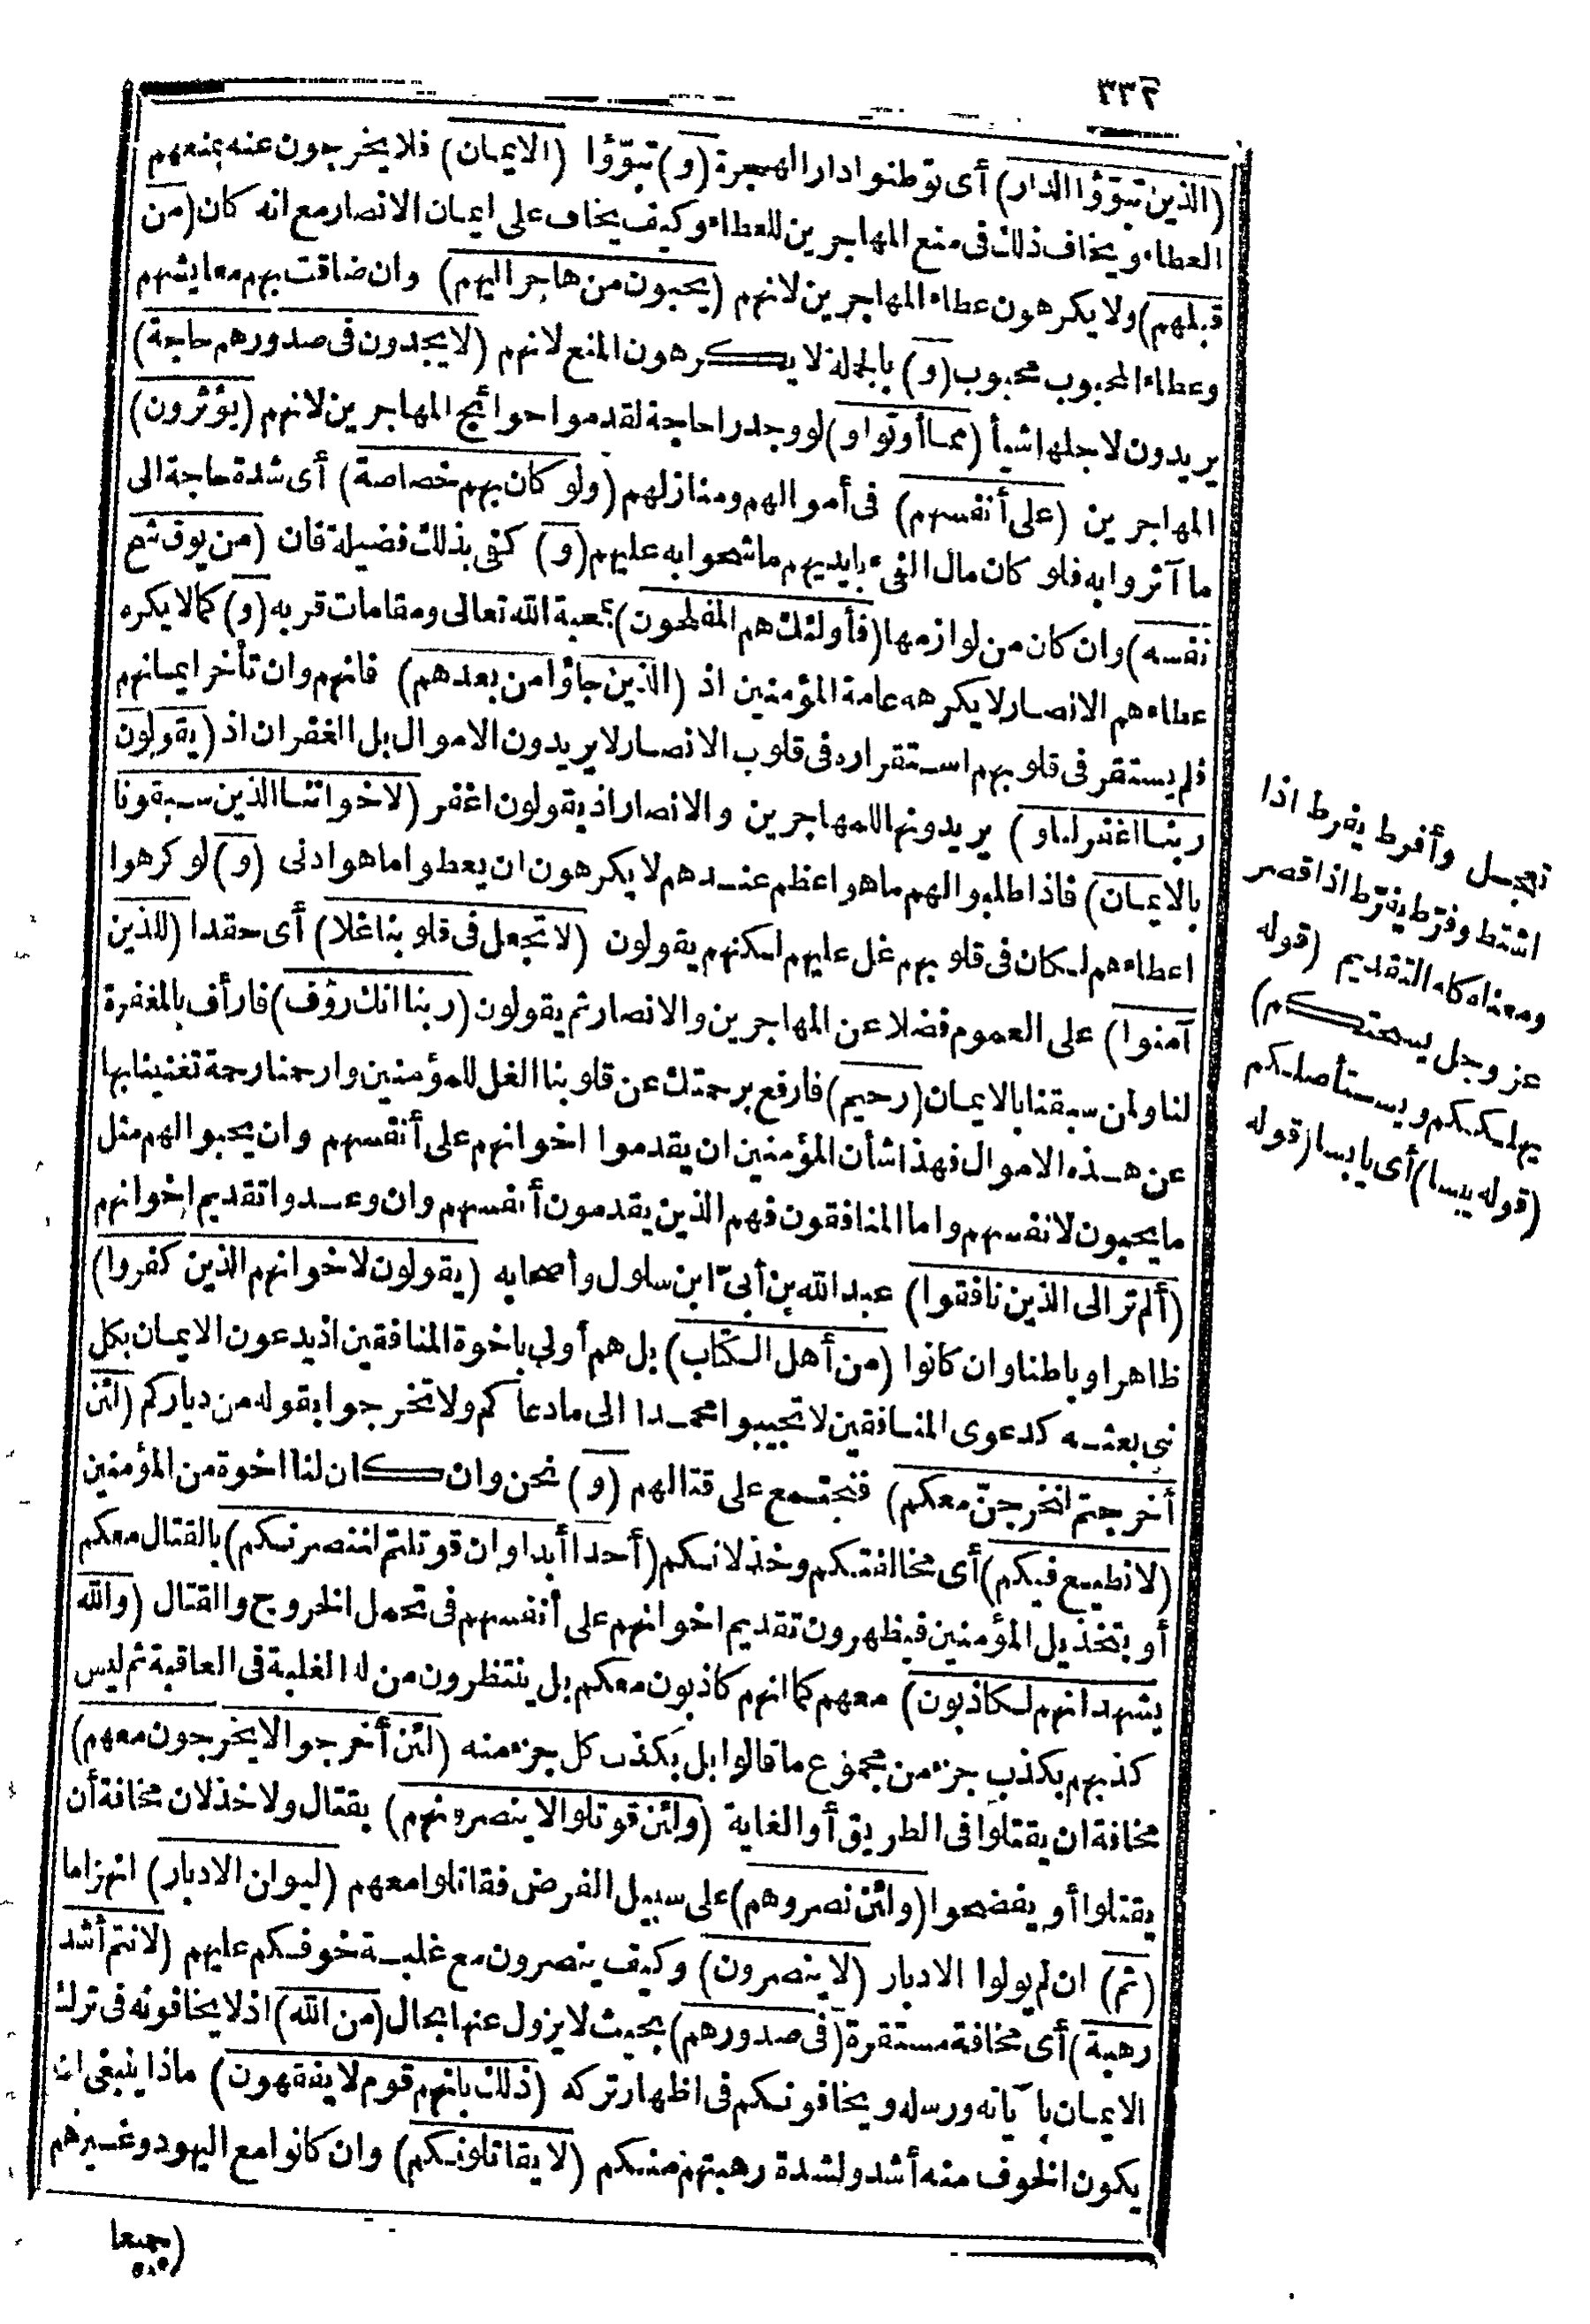 ٣٣٢
(الذين تبوّؤا الدار) أى توطنوا دار الهجرة (و) تبوّؤا (الايمان) فلا يخرجون عنه بمنعهم
العطاء ويخاف ذلك فى منع المهاجرين للعطاء وكيف يخاف على ايمان الانصار مع انه كان (من
قبلهم) ولا يكرهون عطاء المهاجرين لانهم (يحبون من هاجر اليهم) وان ضاقت بهم معايشهم
وعطاء المحبوب محبوب (و) بالجملة لا يكرهون المنع لانهم (لا يجدون فى صدورهم حاجة)
يريدون لاجلها شيأ (مما أوتوا و) لو وجدوا حاجة لقدموا حوائج المهاجرين لانهم (يؤثرون)
المهاجرين (على أنفسهم) فى أموالهم ومنازلهم (ولو كان بهم خصاصة) أى شدة حاجة الى
ما آثروا به فلو كان مال الفىء بايديهم ما شحوا به عليهم (و) كفى بذلك فضيلة فان (من يوق شح
نفسه) وان كان من لوازمها (فأولئك هم المفلحون) بمحبة الله تعالى ومقامات قربه (و) كما لا يكره
عطاءهم الانصار لا يكرهه عامة المؤمنين اذ (الذين جاؤا من بعدهم) فانهم وان تأخر ايمانهم
فلم يستقر فى قلوبهم استقراره فى قلوب الانصار لا يريدون الاموال بل الغفران اذ (يقولون
ربنا اغفر لنا و) يريدونها للمهاجرين والانصار اذ يقولون اغفر (لاخواننا الذين سبقونا
بالايمان) فاذا طلبوا لهم ما هو اعظم عندهم لا يكرهون ان يعطوا ما هو ادنى (و) لو كرهوا
اعطاءهم لكان فى قلوبهم غل عليهم لكنهم يقولون (لا تجعل فى قلوبنا غلا) أى حقدا (للذين
آمنوا) على العموم فضلا عن المهاجرين والانصار ثم يقولون (ربنا انك رؤف) فارأف بالمغفرة
لنا ولمن سبقنا بالايمان (رحيم) فارفع برحمتك عن قلوبنا الغل للمؤمنين وارحمنا رحمة تغنينا بها
عن هذه الاموال فهذا شأن المؤمنين ان يقدموا اخوانهم على أنفسهم وان يحبوا لهم مثل
ما يحبون لانفسهم واما المنافقون فهم الذين يقدمون أنفسهم وان وعدوا تقديم اخوانهم
(ألم تر الى الذين نافقوا) عبد الله بن أبىّ ابن سلول وأصحابه (يقولون لاخوانهم الذين كفروا)
ظاهرا وباطنا وان كانوا (من أهل الكتاب) بل هم أولى باخوة المنافقين اذ يدعون الايمان بكل
نبى بعثه كدعوى المنافقين لا تجيبوا محمدا الى ما دعاكم ولا تخرجوا بقوله من دياركم (لئن
أخرجتم لنخرجنّ معكم) فنجتمع على قتالهم (و) نحن وان كان لنا اخوة من المؤمنين
(لا نطيع فيكم) أى مخالفتكم وخذلانكم (أحدا أبدا وان قوتلتم لننصرنكم) بالقتال معكم
أو بتخذيل المؤمنين فيظهرون تقديم اخوانهم على أنفسهم فى تحمل الخروج والقتال (والله
يشهد انهم لكاذبون) معهم كما انهم كاذبون معكم بل ينتظرون من له الغلبة فى العاقبة ثم ليس
كذبهم بكذب جزء من مجموع ما قالوا بل بكذب كل جزء منه (لئن أخرجوا لا يخرجون معهم)
مخافة ان يقتلوا فى الطريق أو الغاية (ولئن قوتلوا لا ينصرونهم) بقتال ولا خذلان مخافة أن
يقتلوا أو يفضحوا (ولئن نصروهم) على سبيل الفرض فقاتلوا معهم (ليولن الادبار) انهزاما
(ثم) ان لم يولوا الادبار (لا ينصرون) وكيف ينصرون مع غلبة خوفكم عليهم (لانتم أشد
رهبة) أى مخافة مستقرة (فى صدورهم) بحيث لا يزول عنها بحال (من الله) اذ لا يخافونه فى ترك
الايمان بآياته ورسله ويخافونكم فى اظهار تركه (ذلك بانهم قوم لا يفقهون) ماذا ينبغى ان
يكون الخوف منه أشد ولشدة رهبتهم منكم (لا يقاتلونكم) وان كانوا مع اليهود وغيرهم
(جميعا
تعجل وأفرط يفرط اذا
اشتط وفرّط يفرّط اذا قصر
ومعناه كله التقديم (قوله
عز وجل يسحتكم)
يهلككم ويستأصلكم
(قوله يبسا) أى يابسا (قوله